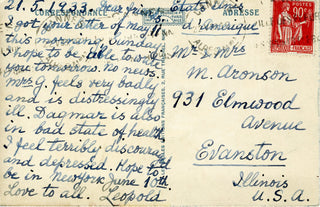 21.5.1933. Dear June
I got your letter of May 11
this morning. Sunday
I hope to be able to
you tomorrow. No news.
Mrs G. feels very badly
and is distressingly
ill. Dagmar is also
in bad state of health
I feel terribly discouraged
and depressed. Hope to
be in New York June 10th
Love to all. Leopold
CORRESPONDANCE
ADRESSE
Etats Unis
d'Amerique
Mr & Mrs
M. Aronson
931 Elmwood
Avenue
Evanston
Illinois
U.S.A.
POSTES
90c
FRANÇAISE